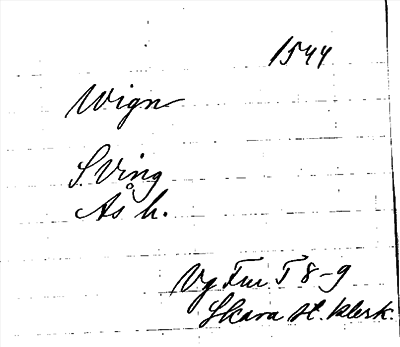 1544
Wign
S. Ving
Ås h.
Vg Fru T 8-9
Skara st. klerk.